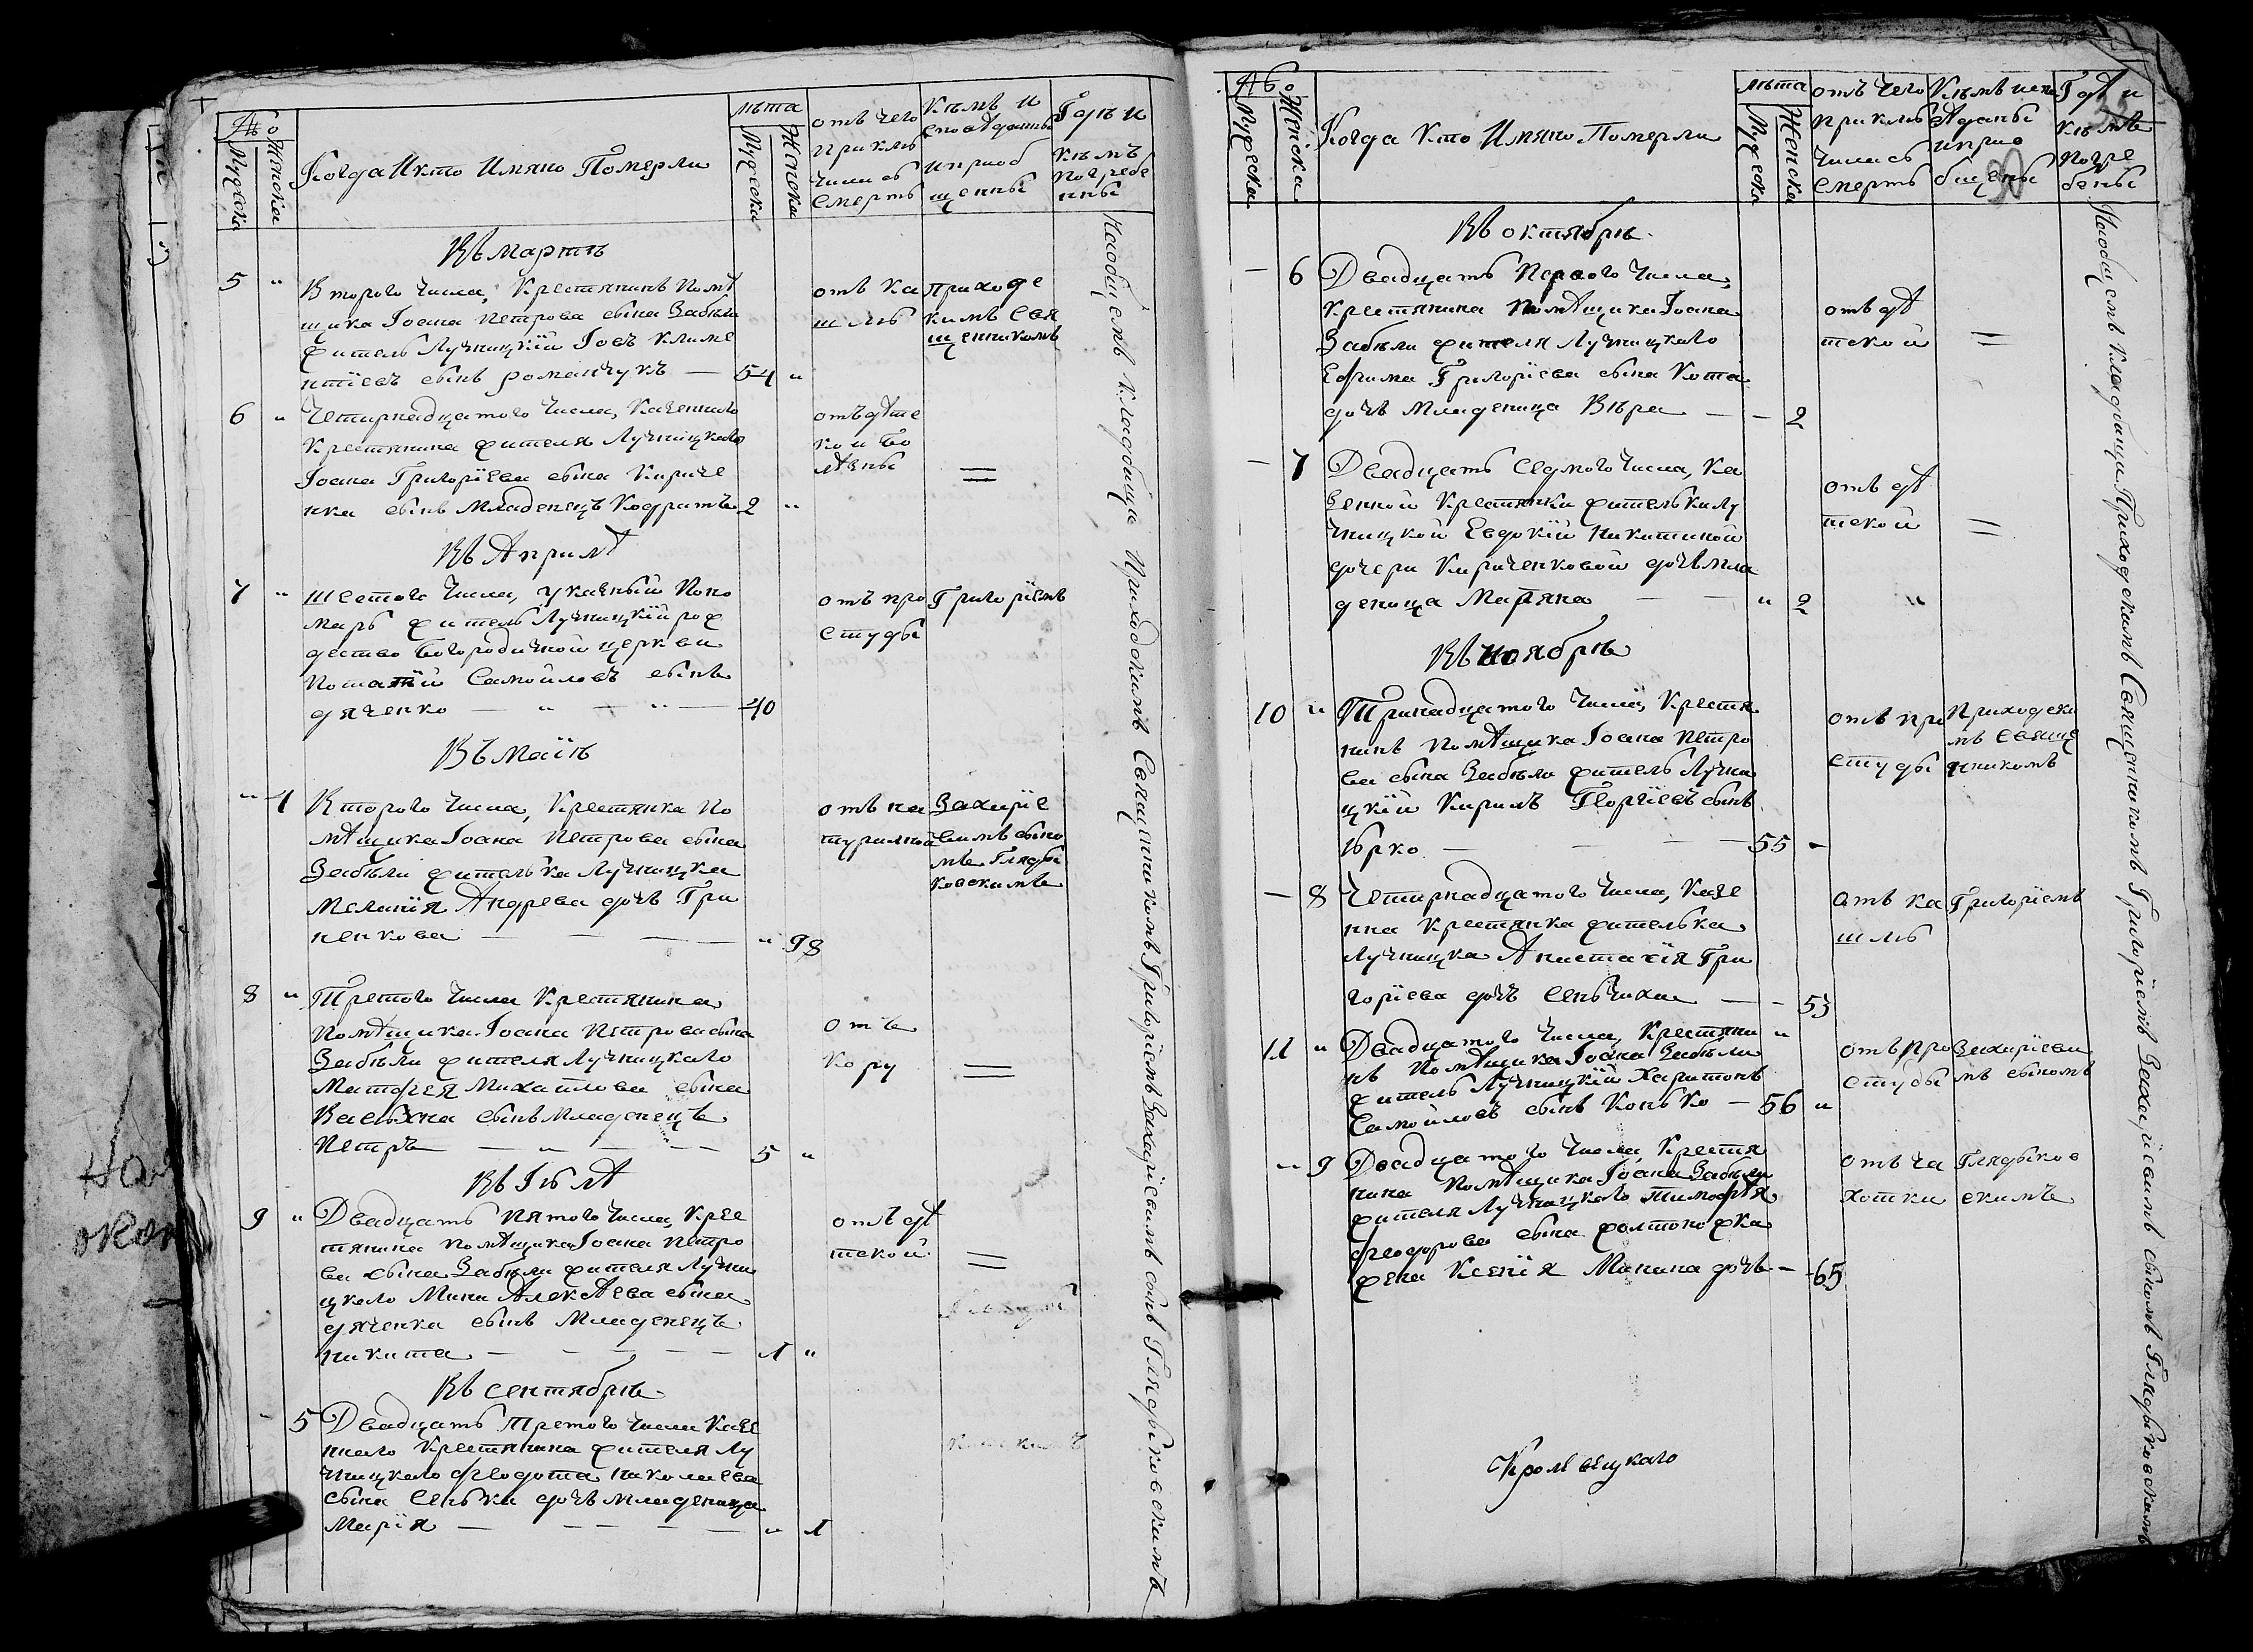 №
Мужеска
Женска
Когда И кто Имяно Померли
лѣта
Мужеска
Женска
отъ чего
приклю
чилась
смерть
Кѣмъ и
споведанны
и приоб
щенны
Где и
кѣмъ
погребе
нны
Въ мартѣ
5 " Второго числа, Крестянинъ помѣ
щика Іоана Петрова сына Забѣлы
житель Лучницкій Іовъ Климе
нтіевъ сынъ романчукъ — 54 "
отъ ка
шлю
приходс
кимъ Свя
щенникомъ
6 " Четирнадцатого числа, Казенного
Крестянина жителя Лучницкаго
Іоана Григоріева сына Кириче
нка сынъ младенецъ Кодратъ 2 "
отъ дѣтс
кой бо
лѣзны
=
Въ Априлѣ
7 " шестого числа, указный Поно
марь житель Лучницкій рож
дество Богородичной церкви
Потапій Самойловъ сынъ
дяченко — " — " — 40
отъ про
студы
Григоріемъ
Въ маіи
" 4 Второго числа, Крестянка по
мѣщика Іоана Петрова сына
Забѣлы жителька Лучницка
Меланія Андрева дочь Гри
ненкова — — — " 98
отъ на
туралной
Захаріе
вимъ сыно
мъ Гляды
ковскимъ
8 " Третого числа Крестянина
помѣщика Іоана Петрова сына
Забѣлы жителя Лучницкаго
Матфея Михайлова сына
сынъ младенецъ
Петръ — " — — 5 "
отъ
кору
=
Въ Іюлѣ
9 " Двадцать пятого числа, Крес
тянина помѣщика Іоана Петро
ва сына Забѣлы жителя Лучни
цкаго Мины Алексѣева сына
дяченка сынъ младенецъ
никита — — — — — 1 "
отъ дѣ
тской
=
Въ сентябрѣ
- 5 Двадцать третого числа Казе
ннаго Крестянина жителя Лу
чницкаго Феодота николаева
сына Сенька дочь младеница
Марія — — — — — " 1
На общемъ кладбищи Приходскимъ Священникомъ Григоріемъ Захаріевимъ сыномъ Глядыковскимъ
№
Мужеска
Женска
Когда Кто Имяно Померли
лѣта
Мужеска
Женска
отъ чего
прикл
чилась
смерть
Кѣмъ испо
веданы
и прио
бщены
Где и
кѣмъ
погре
бены
Въ октябрѣ
— 6 Двадцать первого числа,
Крестянина помѣщика Іоана
Забѣлы жителя Лучницкаго
Ефима Григоріева сына Кота
дочь младеница Вѣра — — 2
отъ дѣ
тской
=
— 7 Двадцать седмого числа, Ка
зенной Крестянки жительки Лу
чницкой Евдокій никитиной
дочери Кириченковой дочь мла
деница Маряна — — " 2
отъ дѣ
тской
=
"
Въ ноябрѣ
10 " Тринадцатого числа, Крестя
нинъ помѣщика Іоана Петро
ва сына Забѣлы житель Лучни
цкій Кирилъ Георгіевъ сынъ
Юрко — — — 55 -
отъ про
студы
Приходски
мъ Свяще
нникомъ
— 8 Четирнадцатого числа, Казе
нна Крестянка жителька
Лучницка Анастасія Гри
горіева дочь Сенчиха — — 53
отъ ка
шлю
Григоріемъ
11 " Двадцатого числа, Крестяни "
нъ помѣщика Іоана Забѣлы
житель Лучницкій Харитонъ
Самойловъ сынъ Конько — 56 "
отъ про
студы
Захаріеви
мъ сыномъ
" 9 Двадцатого числа Крестя
нина помѣщика Іоана Забѣлы
жителя Лучницкаго Тимофѣя
Феодорова сына жолтоножка
жена Ксенія Минина дочь — 65
отъ ча
хотки
Глядыков
скимъ
На общемъ кладбищи Приходскимъ Священникомъ Григоріемъ Захаріевимъ сыномъ Глядыковскимъ
Кролевецкаго